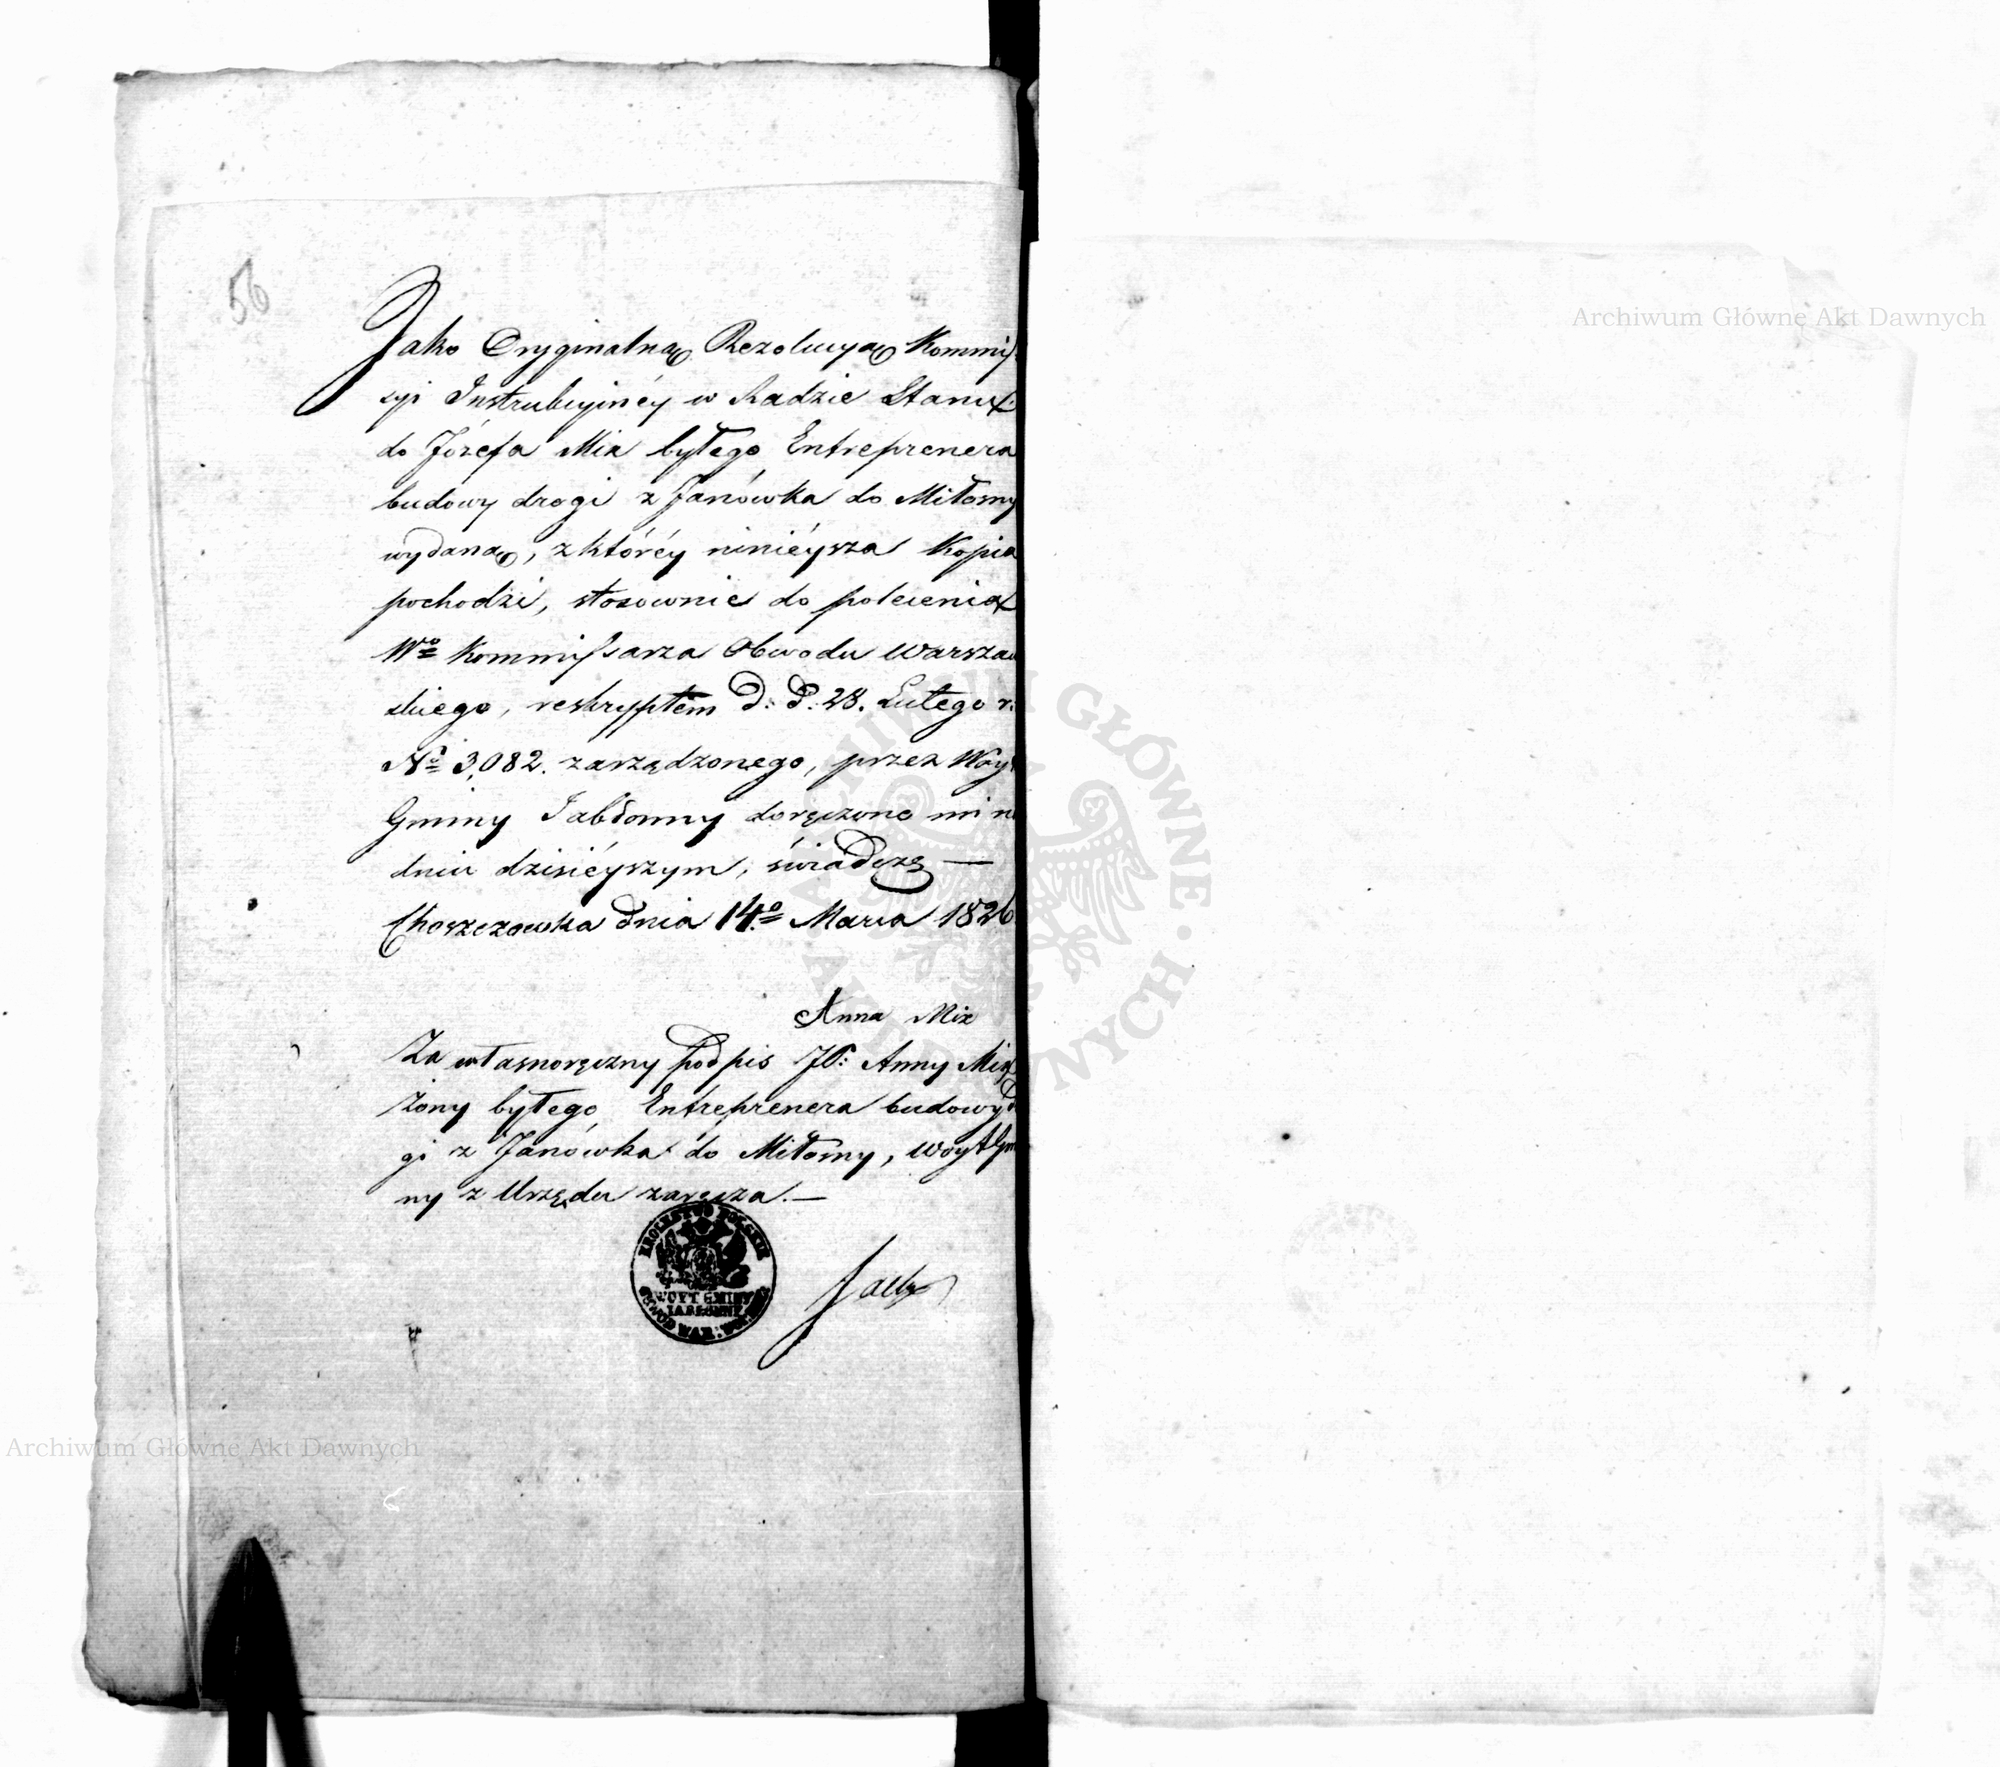 56
Jako Oryginalną Rezolucyą Kommis-
syi Instrukcyinéy w Radzie Stanu
do Józefa Mix byłego Entreprenera
budowy drogi z Janówka do Miłosny
wydaną, z któréy ninieysza Kopia
pochodzi, stosownie do polecenia
Wo Kommissarza Obwodu Warszaw
skiego, reskryptem D: d: 28. Lutego r:
No 3,082. zarządzonego, przez Woyt
Gminy Jabłonny doręczono mi w
dniu dzisiéyszym, świadczę —
Choszczowka dnia 14o Marca 1826
Anna Mix
Za własnoręczny podpis JP: Anny Mix
żony byłego Entreprenera budowy d
gi z Janówka do Miłosny, Woyt Gmi
ny z Urzędu zaręcza. —
KROLESTWO POLSKIE
WOYT GMINY
JABŁONNY
OBWOD WAR:
Archiwum Główne Akt Dawnych
Archiwum Główne Akt Dawnych
ARCHIWUM GŁÓWNE AKT DAWNYCH